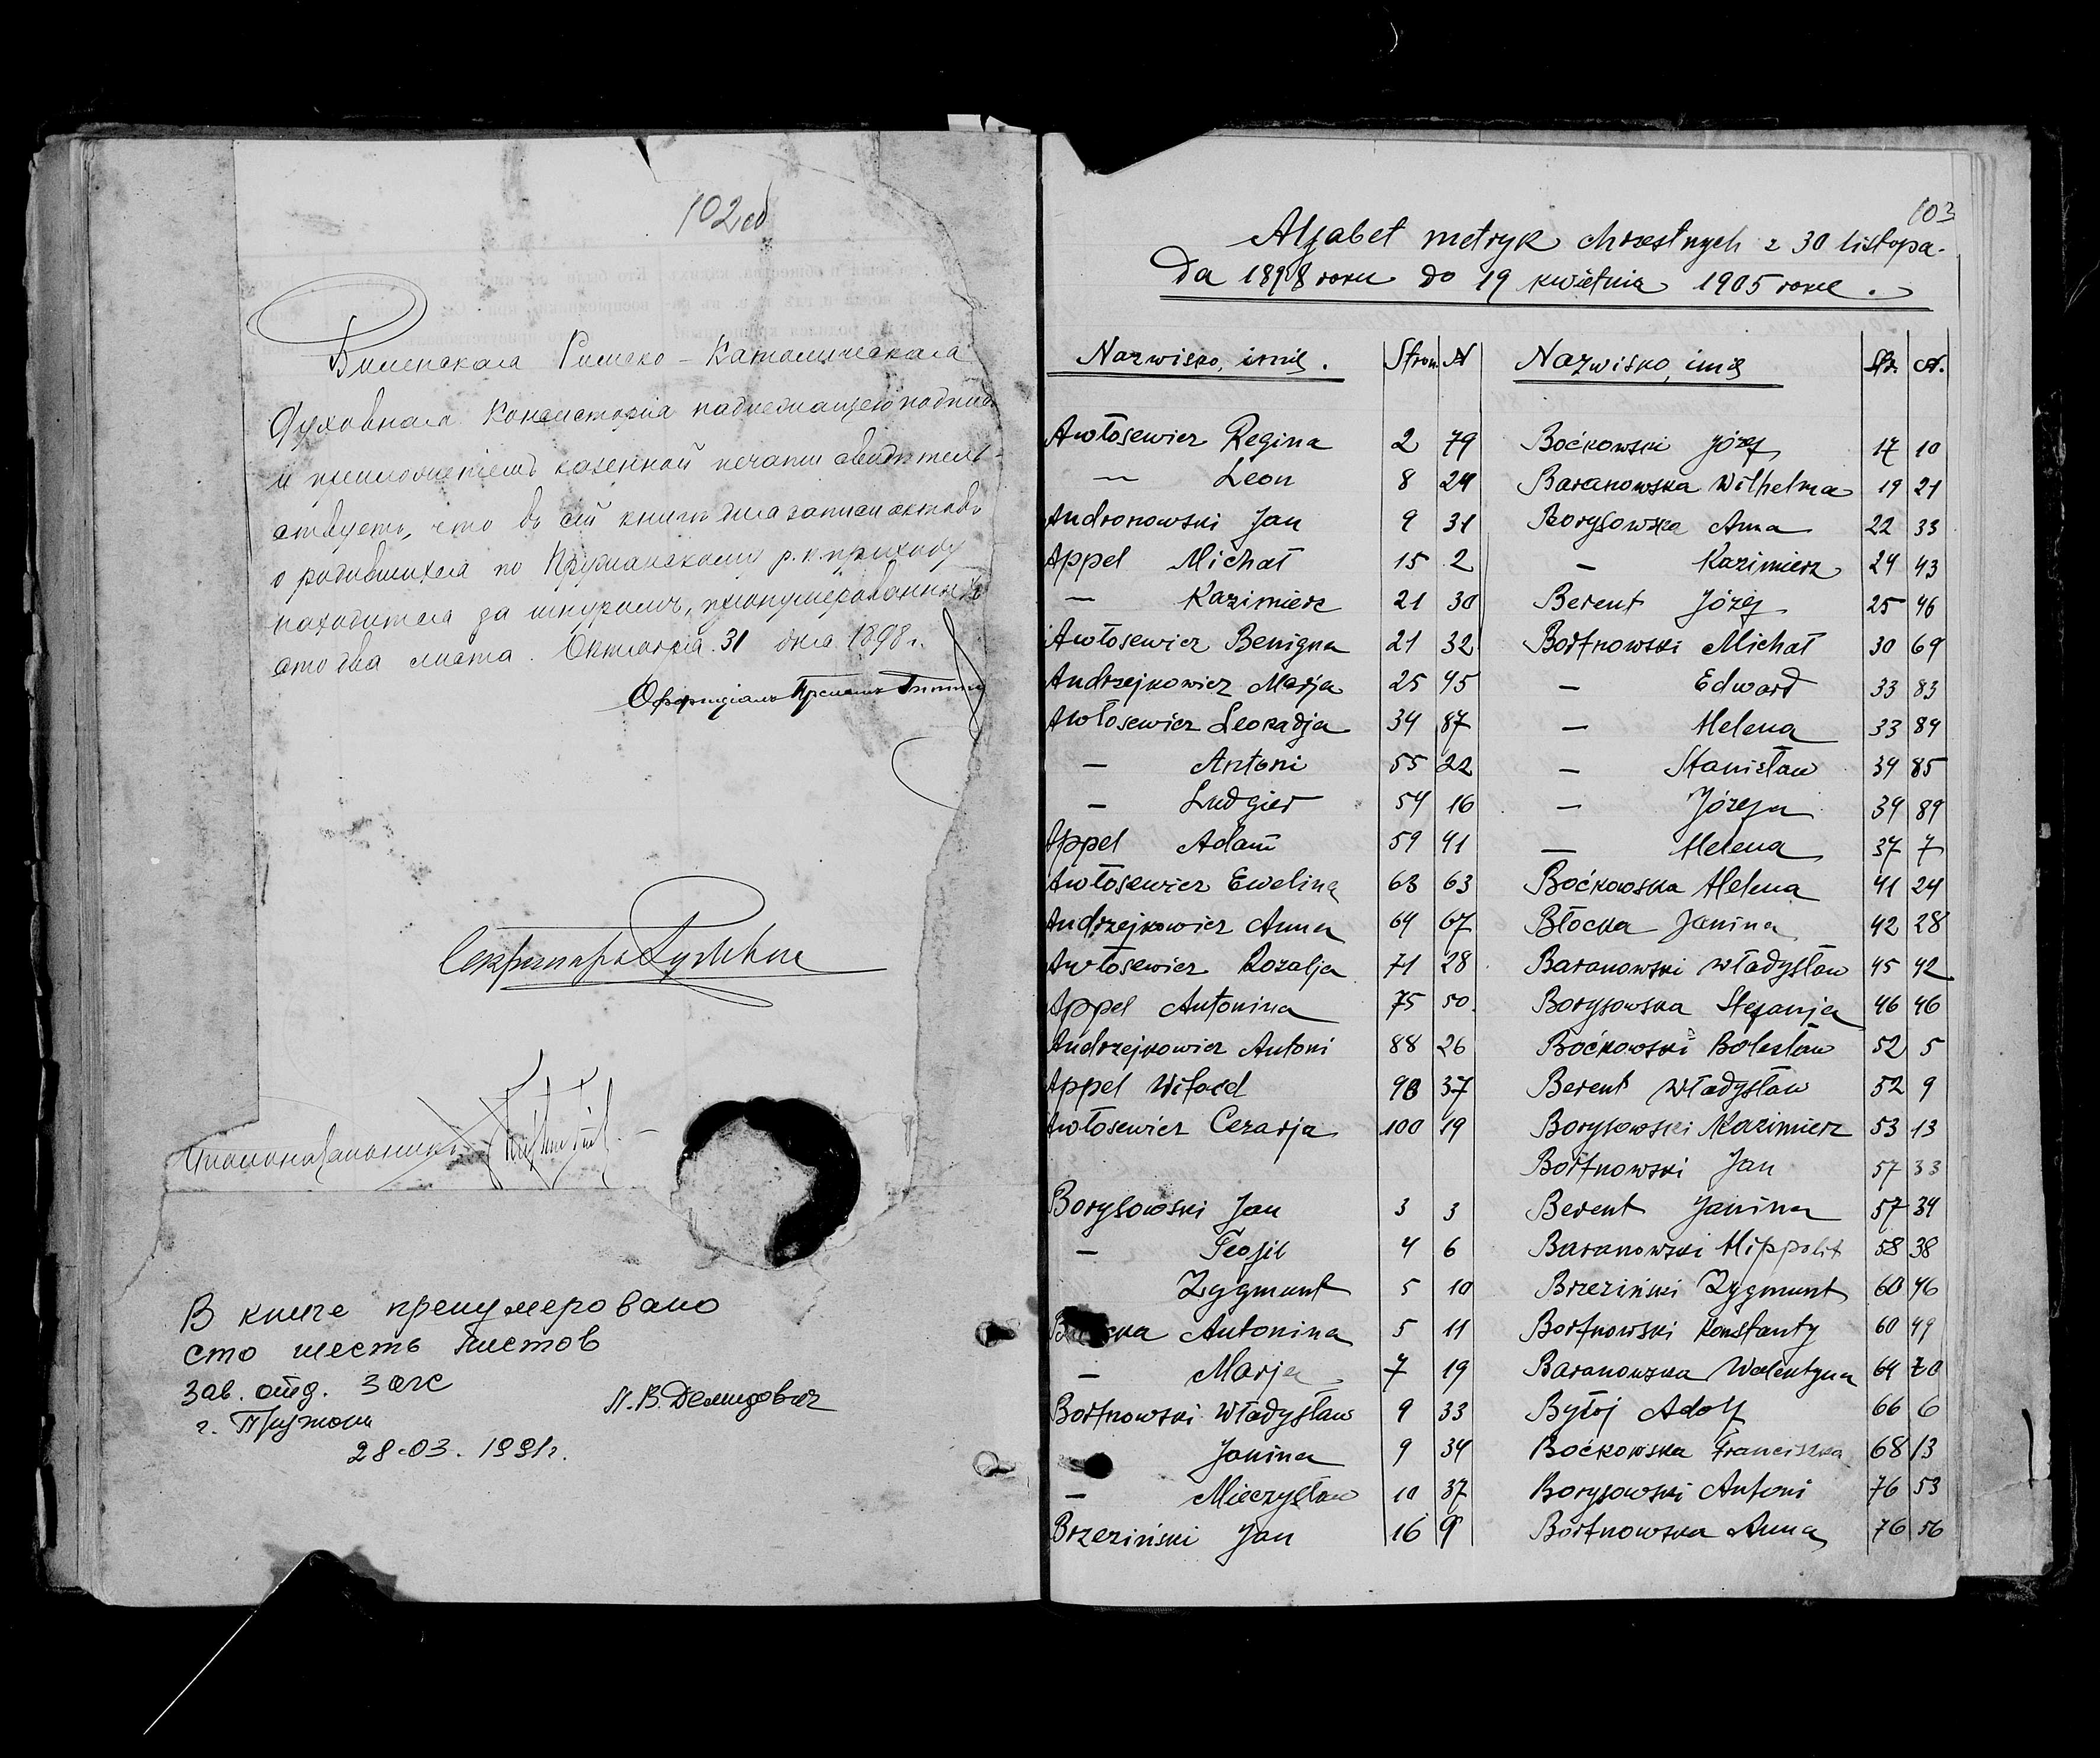 102 об
Виленская Римско-Католическая
Духовная Консисторія надлежащею подписью
и приложеніемъ казенной печати свидѣтель-
ствуетъ, что въ сей книгѣ для записи актовъ
о родившихся по Пружанскому р.к. приходу
находится за шнуромъ, пронумерованныхъ
сто два листа. Октября 31 дня 1898 г.
Оффиціалъ Прелатъ
Секретарь
Столоначальникъ
В книге пренумеровано
сто шесть листов
Зав. отд. загс
г. Пружаны П.В. Демидович
28-03. 1991г.
103
Alfabet metryk chrzestnych z 30 listopa-
da 1898 roku do 19 kwietnia 1905 roku.
Nazwisko, imię. Stron. N Nazwisko, imię Str. N.
Awłosewicz Regina 2 79 Boćkowski Józef 17 10
— Leon 8 24 Baranowska Wilhelma 19 21
Andronowski Jan 9 31 Borysowska Anna 22 33
Appel Michał 15 2 — Kazimierz 24 43
— Kazimierz 21 30 Berent Józef 25 46
Awłosewicz Benigna 21 32 Bortnowski Michał 30 69
Andrzejkowicz Marja 25 45 — Edward 33 83
Awłosewicz Leokadja 34 87 — Helena 33 84
— Antoni 55 22 — Stanisław 34 85
— Ludgier 54 16 — Józefa 34 89
Appel Adam 59 41 — Helena 37 7
Awłosewicz Ewelina 63 63 Boćkowska Helena 41 24
Andrzejkowicz Anna 64 67 Błocka Janina 42 28
Awłosewicz Rozalja 71 28 Baranowski Władysław 45 42
Appel Antonina 75 50. Borysowska Stefanja 46 46
Andrzejkowicz Antoni 88 26 Boćkowski Bolesław 52 5
Appel Witold 90 37 Berent Władysław 52 9
Awłosewicz Cezarja 100 19 Borysowski Kazimierz 53 13
Bortnowski Jan 57 33
Borysowski Jan 3 3 Berent Janina 57 34
— Teofil 4 6 Baranowski Hippolit 58 38
Zygmunt 5 10 Brzeziński Zygmunt 60 46
Antonina 5 11 Bortnowski Konstanty 60 49
— Marja 7 19 Baranowska Walentyna 64 70
Bortnowski Władysław 9 33 Bytoj Adolf 66 6
— Janina 9 34 Boćkowska Franciszka 68 13
— Mieczysław 10 37 Borysowski Antoni 76 53
Brzeziński Jan 16 9 Bortnowska Anna 76 56